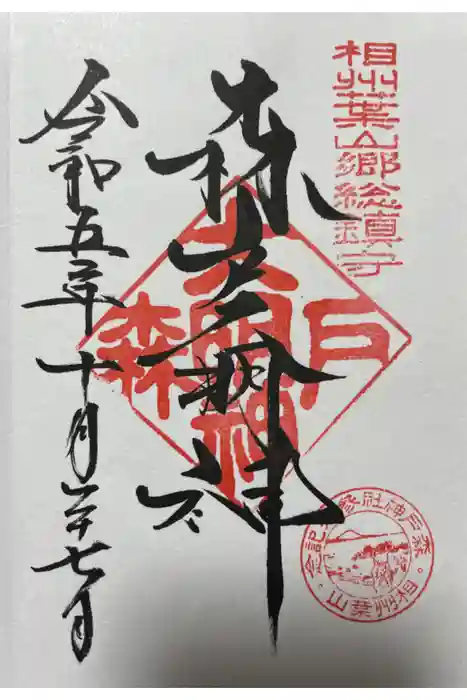 相州葉山郷総鎮守
森戸大明神
森戸
大明神
令和五年十月二十七日
森戸神社参拝記念
相州葉山